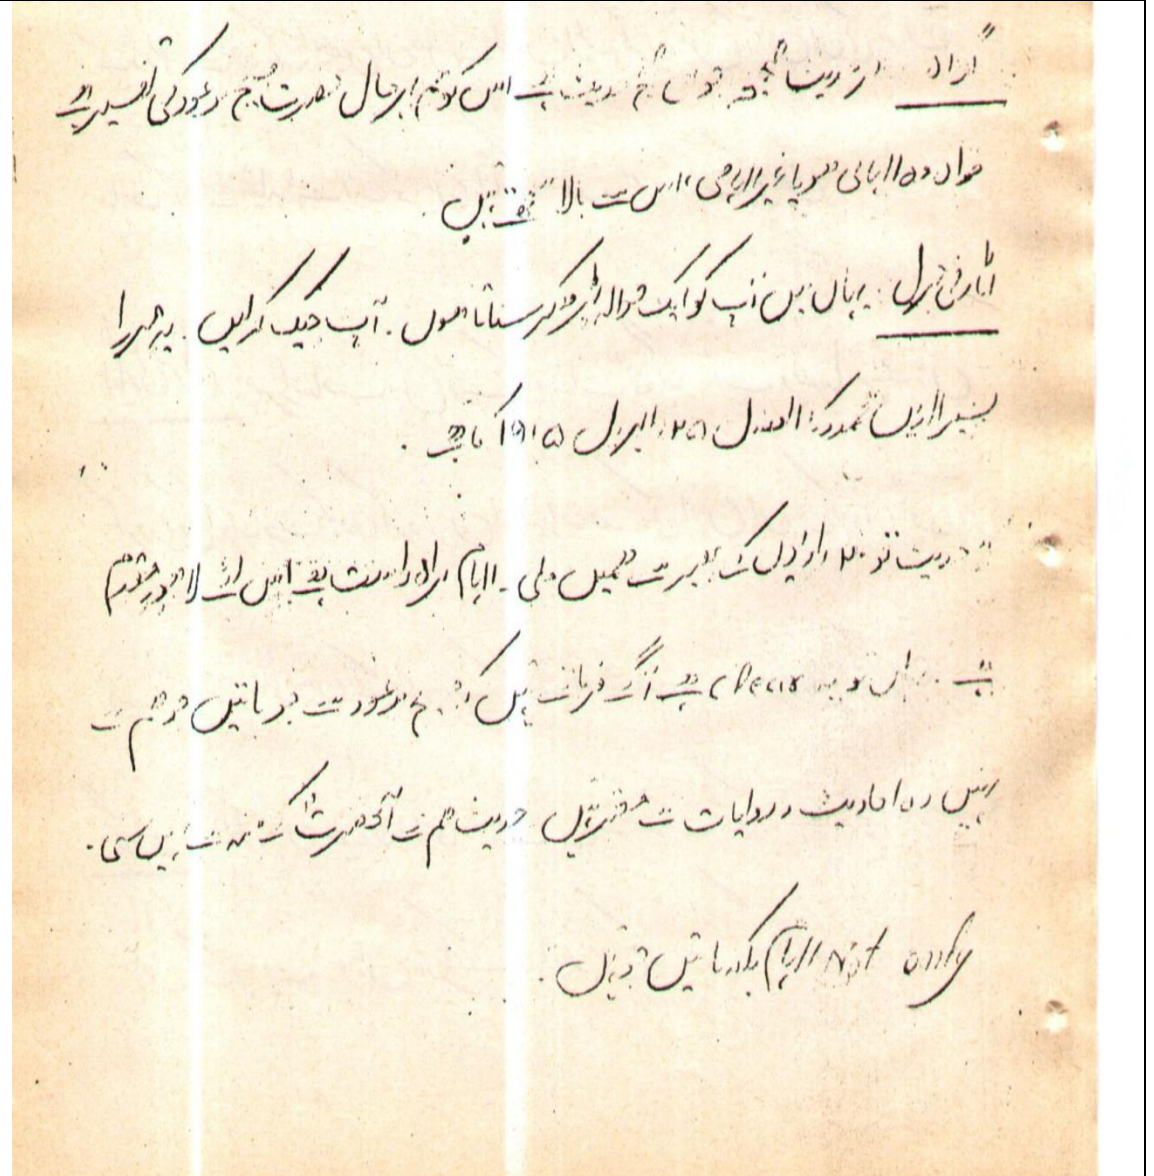 گواہ جو صحیح حدیث ہے اس کو ہم بہرحال حضرت مسیح موعود کی تفسیر
خواہ وہ الہامی ہو یا غیر الہامی، اس سے بالا سمجھتے ہیں۔
اٹارنی جنرل یہاں میں آپ کو ایک حوالہ پڑھ کر سناتا ہوں۔ آپ چیک کر لیں۔ یہ مرزا
بشیر الدین محمود کا الفضل ۲۵؍ اپریل ۱۹۱۵ کا ہے۔
حدیث تو ۲۰ راویوں کے ہمیں ملی۔ الہام براہ راست ہے اس لئے الہام مقدم
ہے۔ یہاں تو یہ clear ہے آگے فرماتے ہیں کہ مسیح موعود سے جو باتیں ہم نے
سنیں وہ احادیث و روایات سے معتبر ہیں۔ حدیث ہم نے آنحضرت کے منہ سے نہیں سنی۔
Not only الہام بلکہ باتیں جو ہیں۔